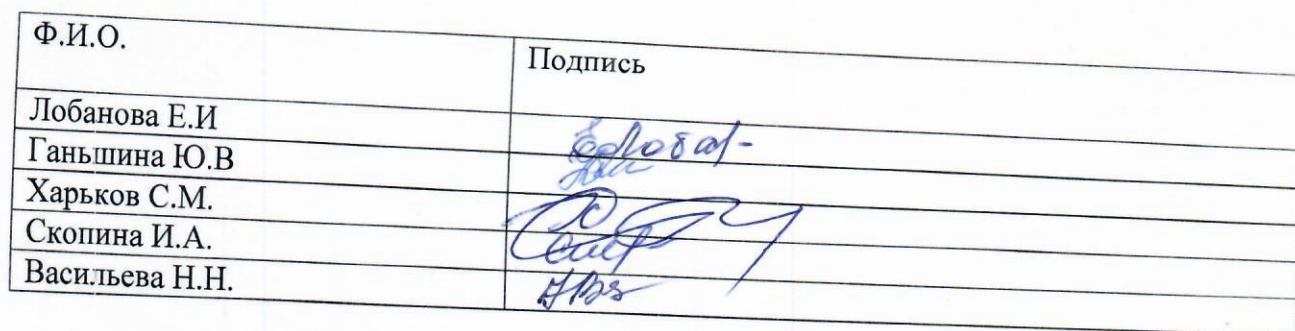 Ф.И.О. Подпись
Лобанова Е.И
Ганьшина Ю.В
Харьков С.М.
Скопина И.А.
Васильева Н.Н.